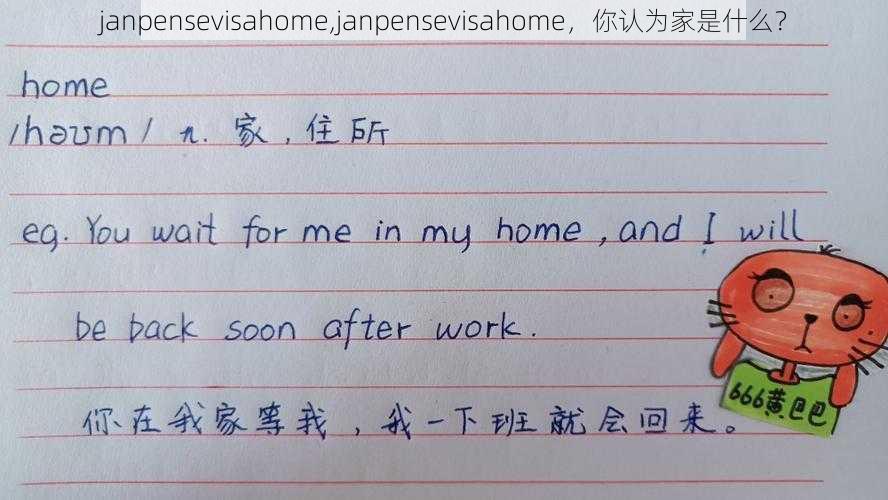 janpensevisahome,janpensevisahome，你认为家是什么?
home
/həʊm/ n. 家，住所
eg. You wait for me in my home, and I will
be back soon after work.
666黄巴巴
你在我家等我，我一下班就会回来。